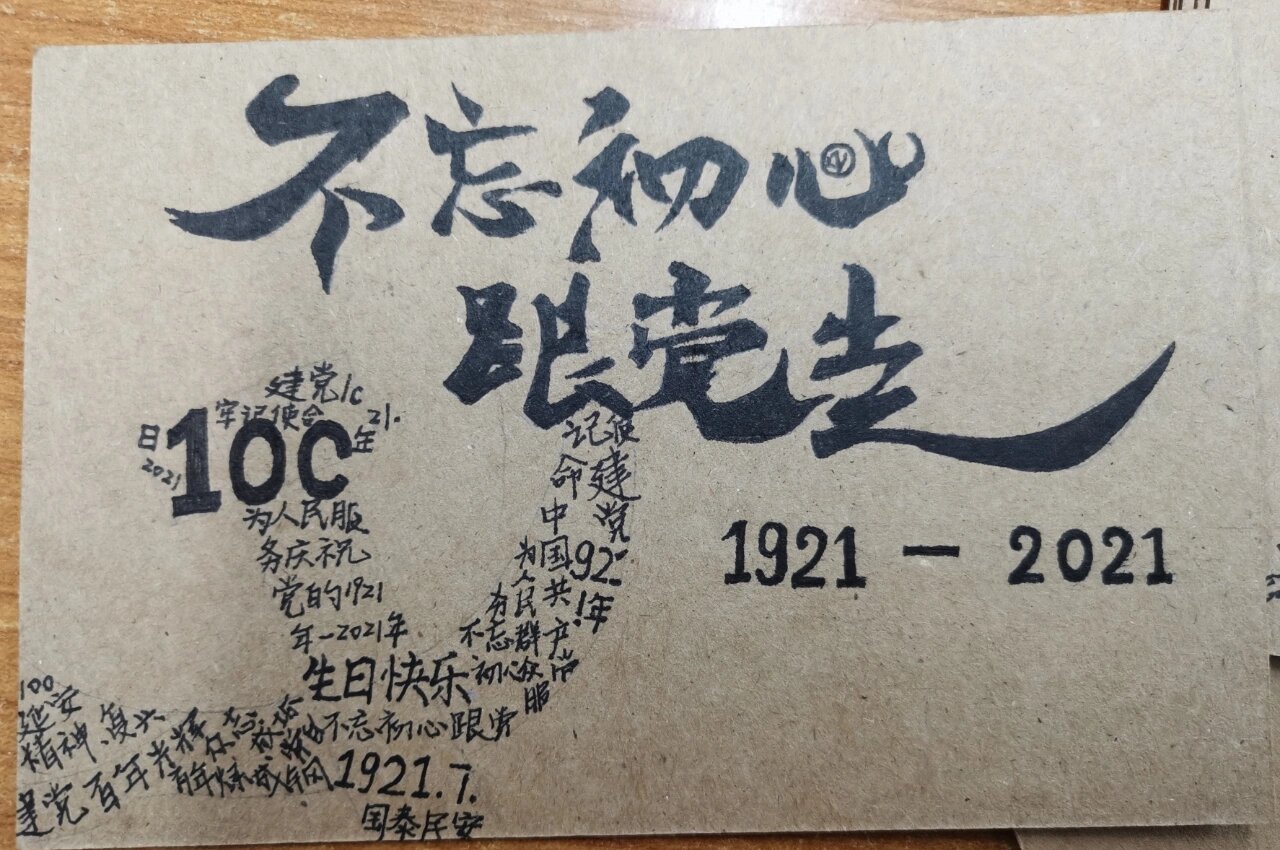 不忘初心
跟党走
1921 — 2021
建党1c
牢记使命
21.
年
日
2021
10C
为人民服
务庆祝
党的1921
年—2021年
生日快乐
不忘初心跟党
1921.7.
国泰民安
记使
命建
党
中国共产党
92
1年
为人民
有
群众
服
不忘
初心
100
延安
精神、复兴
建党百年光辉